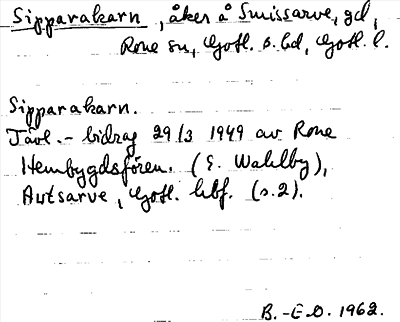 Sipparakarn, åker å Smissarve, gd,
Rone sn, Gotl. s. hd, Gotl. l.
Sipparakarn.
Tävl.-bidrag 29/3 1949 av Rone
Hembygdsfören. (E. Wahlby),
Autsarve, Gotl. hbf. (s.2).
B.-E.O. 1962.